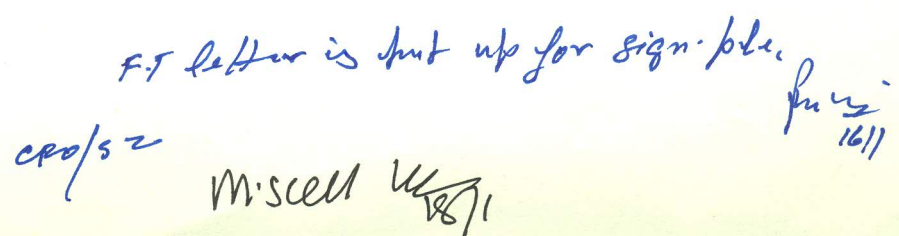 F.T letter is put up for sign. ple.
16/1
CRO/SZ
Miscell
18/1